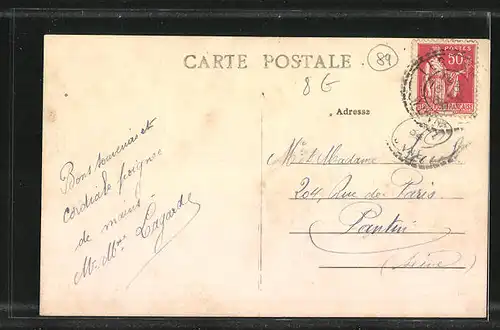 CARTE POSTALE
89
8 €
POSTES
50
Adresse
Bons souvenirs et
cordiale poignée
de mains
M. Mme Lagarde
Mr & Madame
204, Rue de Paris
Pantin
(Seine)